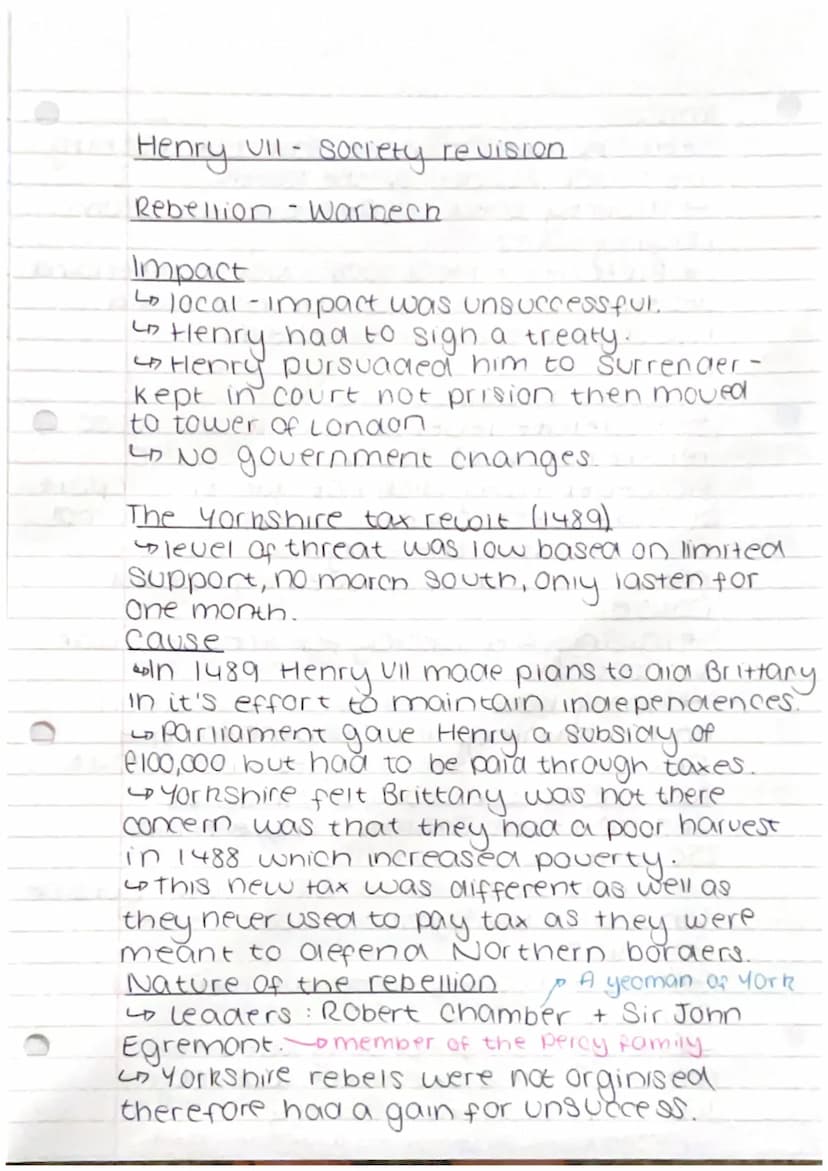 Henry VII - Society revision
Rebellion - Warbech
Impact
↳ local - impact was unsuccessful.
↳ Henry had to sign a treaty.
↳ Henry pursuaded him to surrender -
kept in court not prision then moved
to tower of London
↳ No government changes.
The Yorkshire tax revolt (1489)
↳ level of threat was low based on limited
support, no march south, only lasten for
one month.
Cause
↳ In 1489 Henry VII made plans to aid Brittany
in it's effort to maintain independences.
↳ Parliament gave Henry a subsidy of
£100,000 but had to be paid through taxes.
↳ Yorkshire felt Brittany was not there
concern was that they had a poor harvest
in 1488 which increased poverty.
↳ This new tax was different as well as
they never used to pay tax as they were
meant to defend Northern borders.
Nature of the rebellion A yeoman of York
↳ Leaders : Robert Chamber + Sir John
Egremont. → member of the percy family
↳ Yorkshire rebels were not orginised
therefore had a gain for unsuccess.